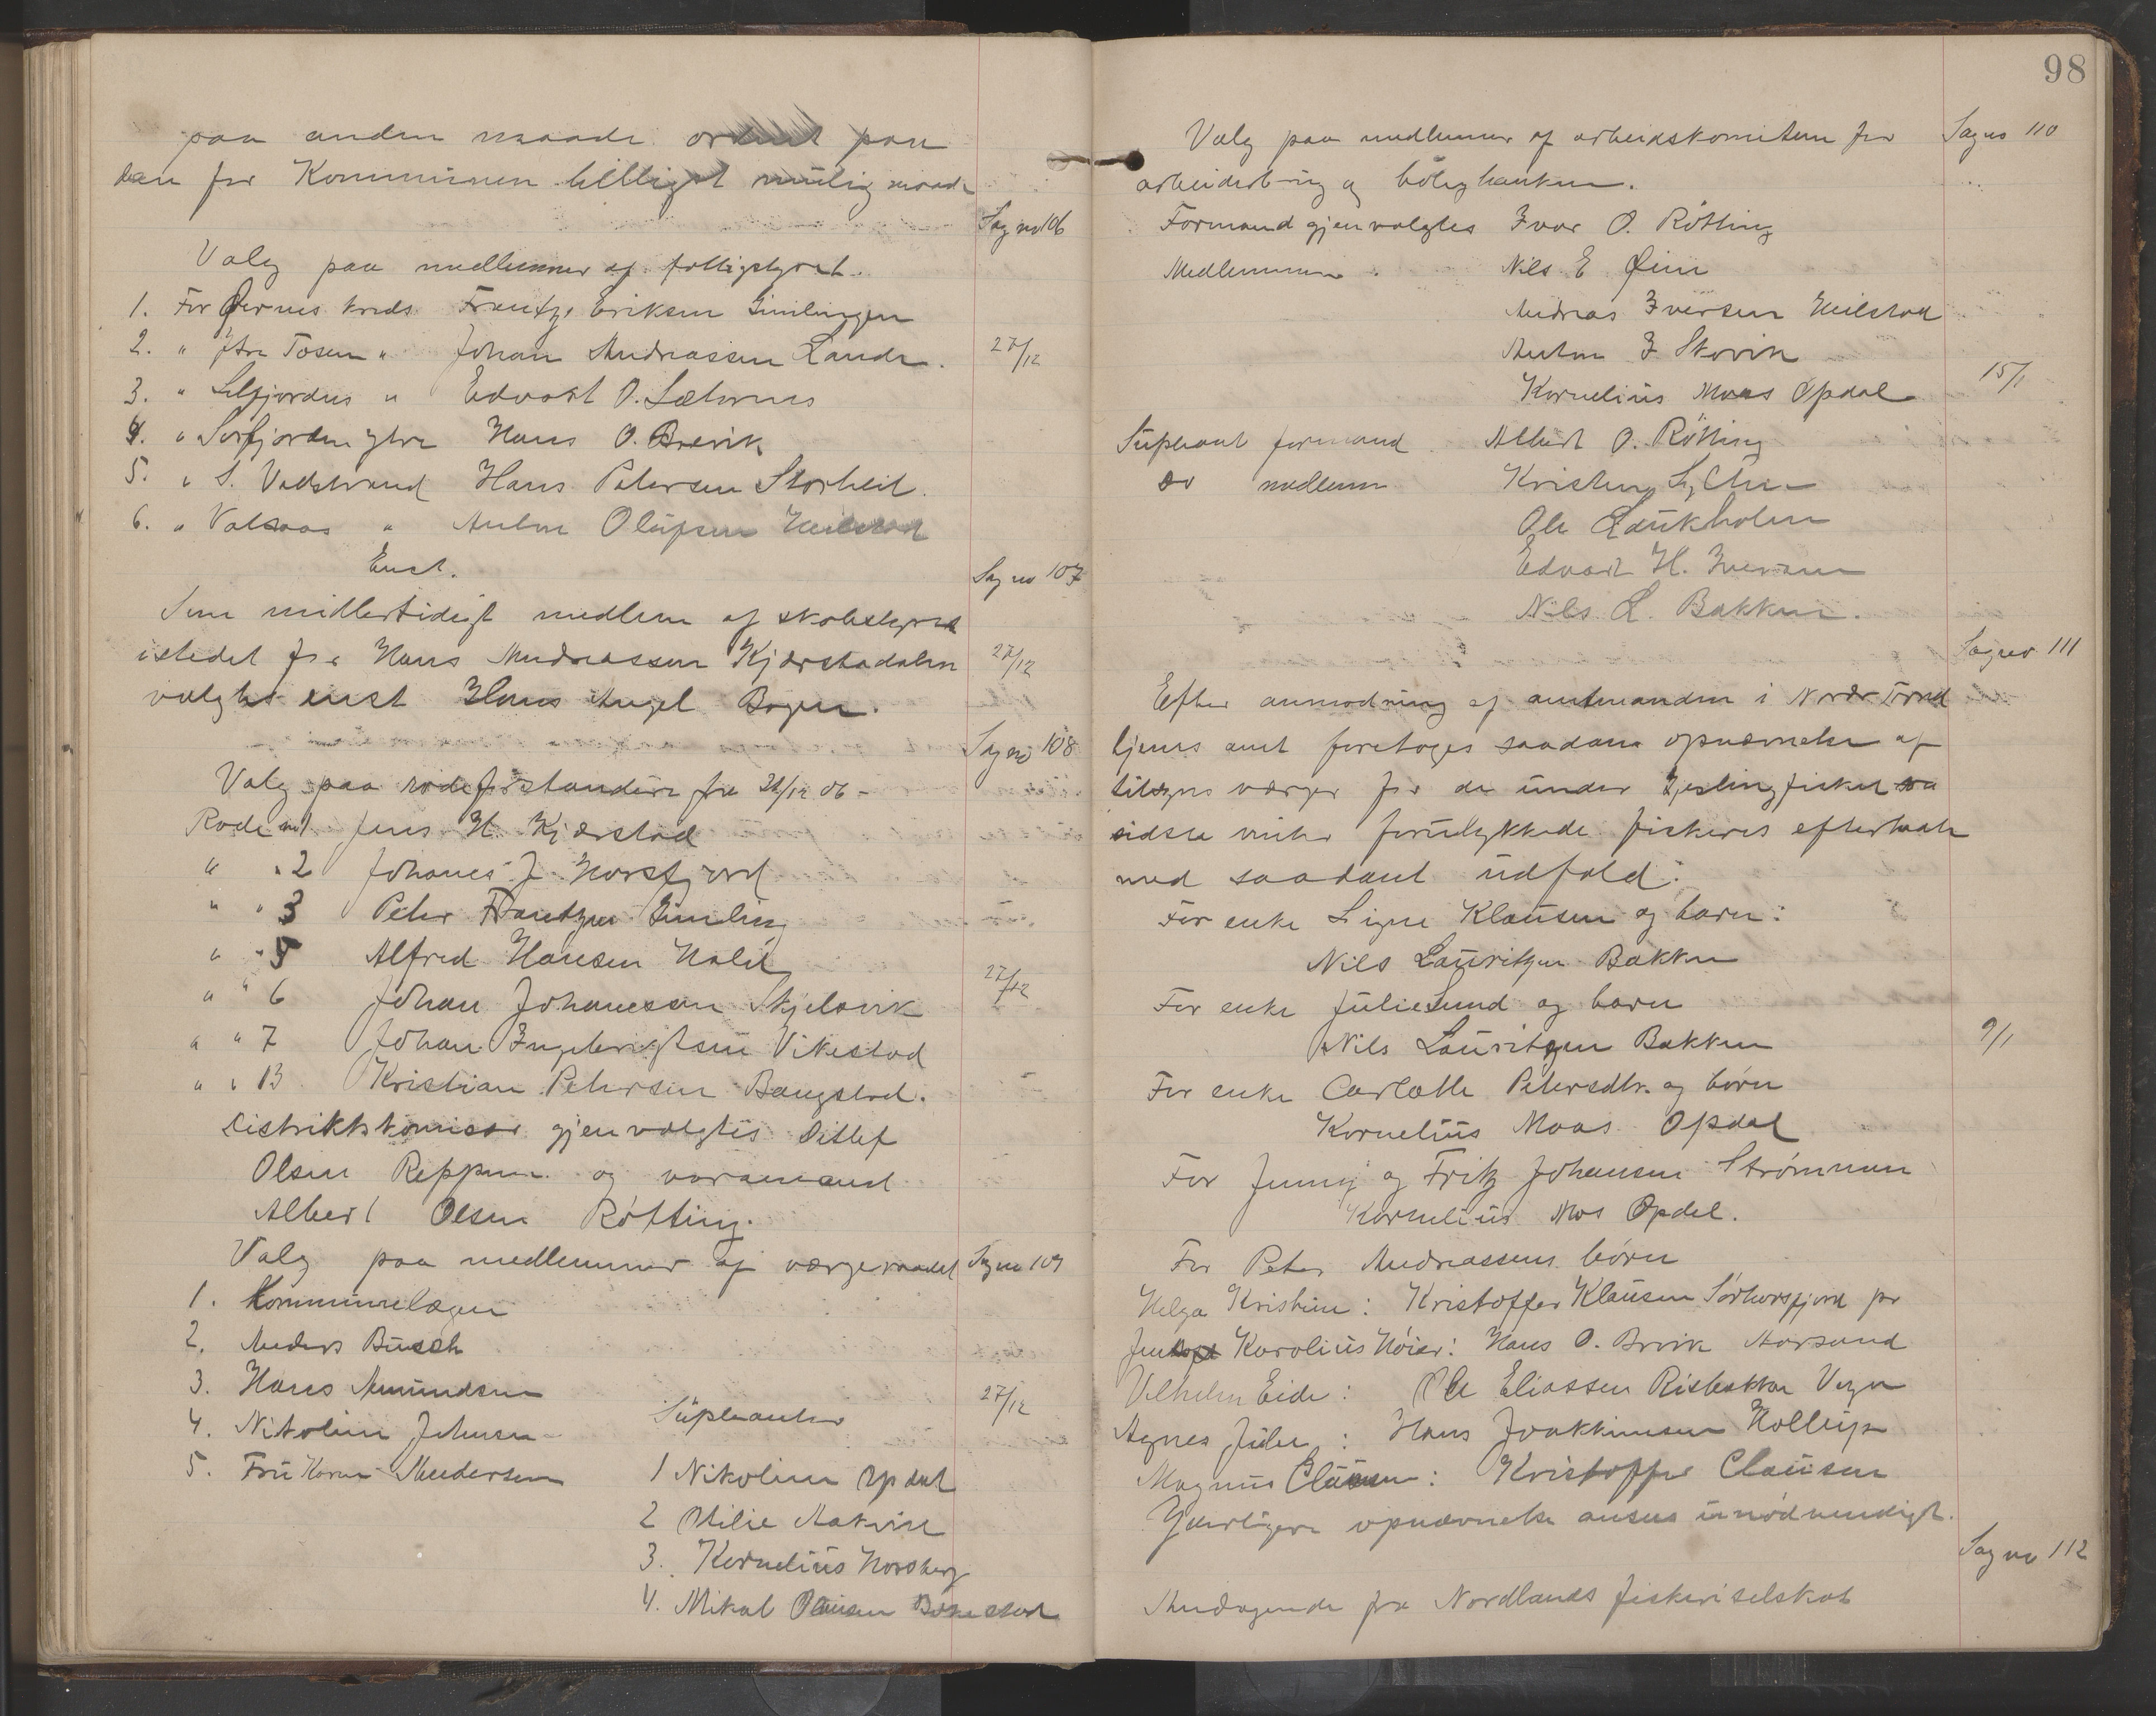 paa anden maade ordnet paa
den for Kommunen billigst mulig maade
Sag no 106
Valg paa medlemmer af fattigstyret.
1. For Øernes kreds Frantz Eriksen Gimlingen
2. " Ytre Tosen " Johan Andreassen Lande. 27/12
3. " Lilfjordens " Edvart O. Sæternes
4. " Sørfjorden ytre Hans O. Brevik
5. " S. Vadstrand Hans Petersen Storheil.
6. " Valsaas " Anton Olufsen Heilstad
Enst.
Sag no 107
Som midlertidigt medlem af skolestyret
istedet for Hans Andreassen Kjærstadalen 27/12
valgtes enst Hans Angel Bogen.
Sag no 108
Valg paa rodeforstandere fra 31/12 06 -
Rode no 1 Jens H. Kjærstad
" " 2 Johanes J. Horsfjord
" " 3 Peter Frantzen Gimling
" " 5 Alfred Hansen
" " 6 Johan Johanesen Skjelsvik 27/12
" " 7 Johan Ingebrigtsen Vikestad
" " 13 Kristian Petersen Bangstad.
Distriktskomisær gjenvalgtes Ditlef
Olsen Reppen og varamand
Albert Olsen Røtting.
Valg paa medlemmer af værgeraadet Sag no 109
1. Kommunelægen
2. Anders Busch
3. Hans Amundsen
4. Nikoline Johnsen
5. Fru Horn Andersen
27/12
Supleanter
1 Nikoline Opdal
2 Otilie Aakvik
3. Kornelius Horsberg
4. Mikal Olausen
98
Valg paa medlemmer af arbeidskomiteen for Sag no 110
arbeiderbrug og boligbanken.
Formand gjenvalgtes Ivar O. Røtting
Medlemmer. Nils E Øien
Andreas Iversen Heilstad
Anton J Skovik
Kornelius Moas Opdal 15/1
Supleant formand Albert O. Røtting
Do medlem Kristen
Ole Laukholm
Edvart H. Iversen
Nils L. Bakken.
Sag no 111
Efter anmodning af amtmanden i Nordr Trond
hjems amt foretoges saadan opnævnelse af
tilsyns værger for de under Gjeslingfisket
sidste vinter forulykkede fiskeres efterladte
med saadant udfald:
For enke Signe Klausen og barn:
Nils Lauritzen Bakken
For enke Julie Lund og barn
Nils Lauritzen Bakken 9/1
For enke Carlotte Petersdtr. og børn
Kornelius Moas Opdal
For Jenny og Fritz Johansen Strømmen
Kornelius Mos Opdal.
For Peter Andreassens børn
Helga Kristine: Kristoffer Klausen Sørhorsfjord pr
Karolius Høier: Hans O. Brvik Aarsand
Vilhelm Eide: Ole Eliassen Risbakken
Agnes Julie: Hans Joakkimsen Hollup
Magnus Clausen: Kristoffer Clausen
Yderligere opnævnelse ansees unødvendigt.
Sag no 112
Andragende fra Nordlands fiskeriselskab